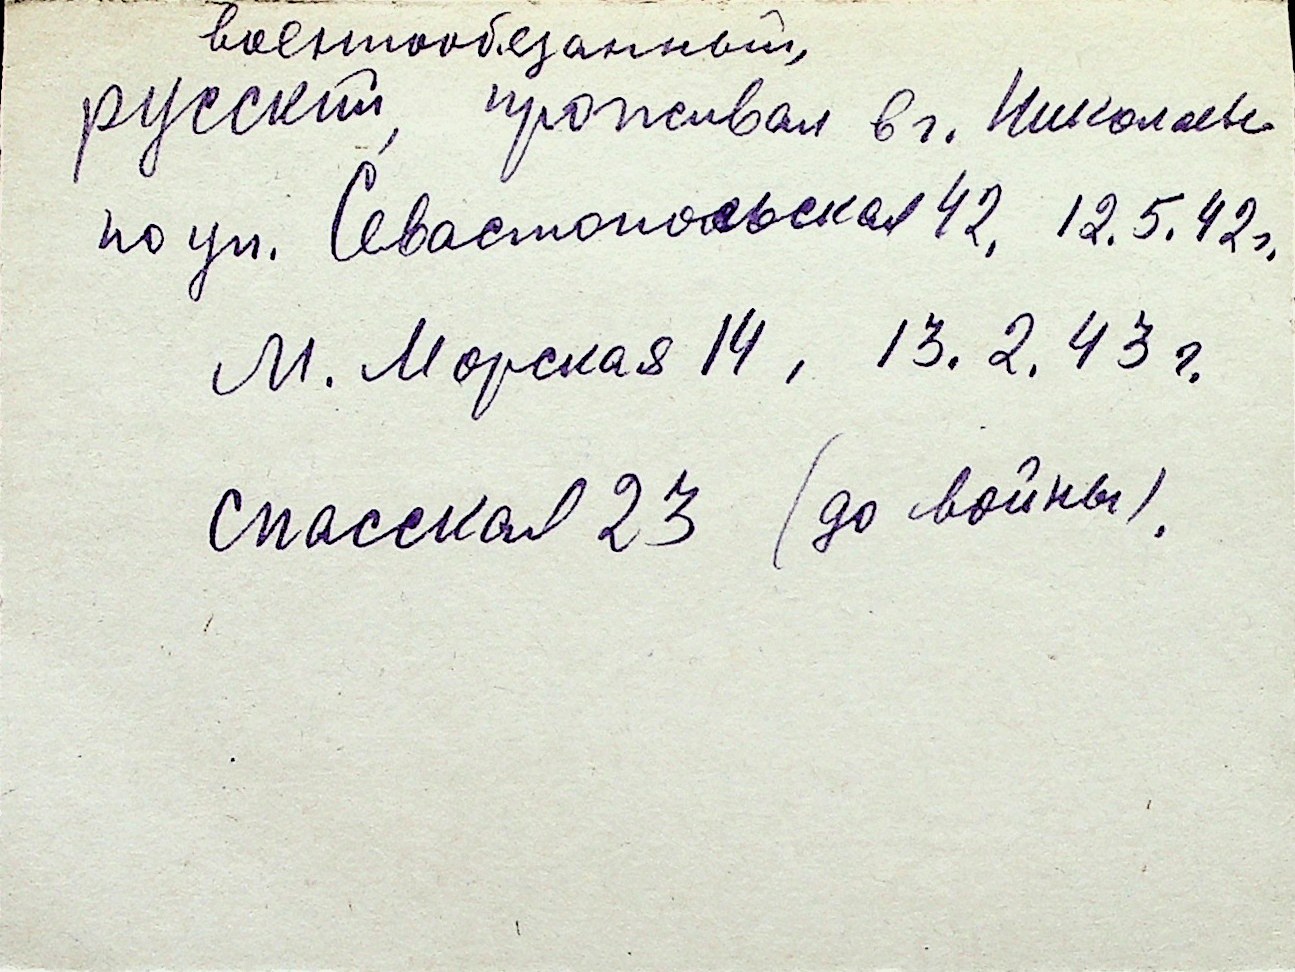 военнообязанный,
русский, проживал в г. Николаеве
по ул. Севастопольская 42, 12.5.42 г.
М. Морская 14, 13.2.43 г.
Спасская 23 (до войны).